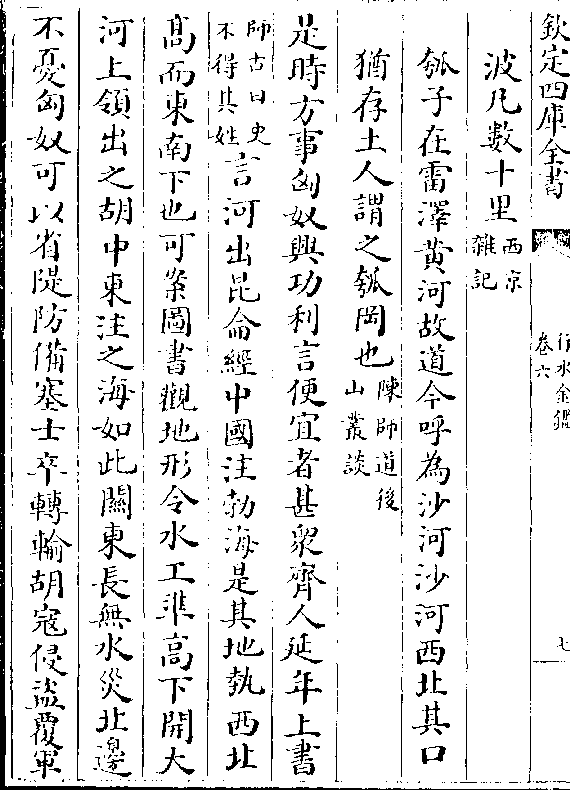 欽定四庫全書
行水金鑑
卷六
七
波凡數十里西京
雜記
瓠子在雷澤黄河故道今呼為沙河沙河西北其口
猶存土人謂之瓠岡也陳師道後
山叢談
是時方事匈奴興功利言便宜者甚衆齊人延年上書
師古曰史
不得其姓言河出昆侖經中國注勃海是其地埶西北
髙而東南下也可案圖書觀地形令水工準高下開大
河上領出之胡中東注之海如此關東長無水災北邊
不憂匈奴可以省隄防備塞士卒轉輸胡寇侵盜覆軍